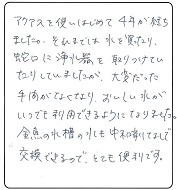 アクアスを使いはじめて4年が経ち
ましたが、それまでは水を買ったり、
蛇口に浄水器を取りつけてい
たりしていましたが、大変だった
手間がなくなり、おいしい水が
いつでも利用できるようになりました。
金魚の水槽の水も中和剤なしで
交換できるので、とても便利です。